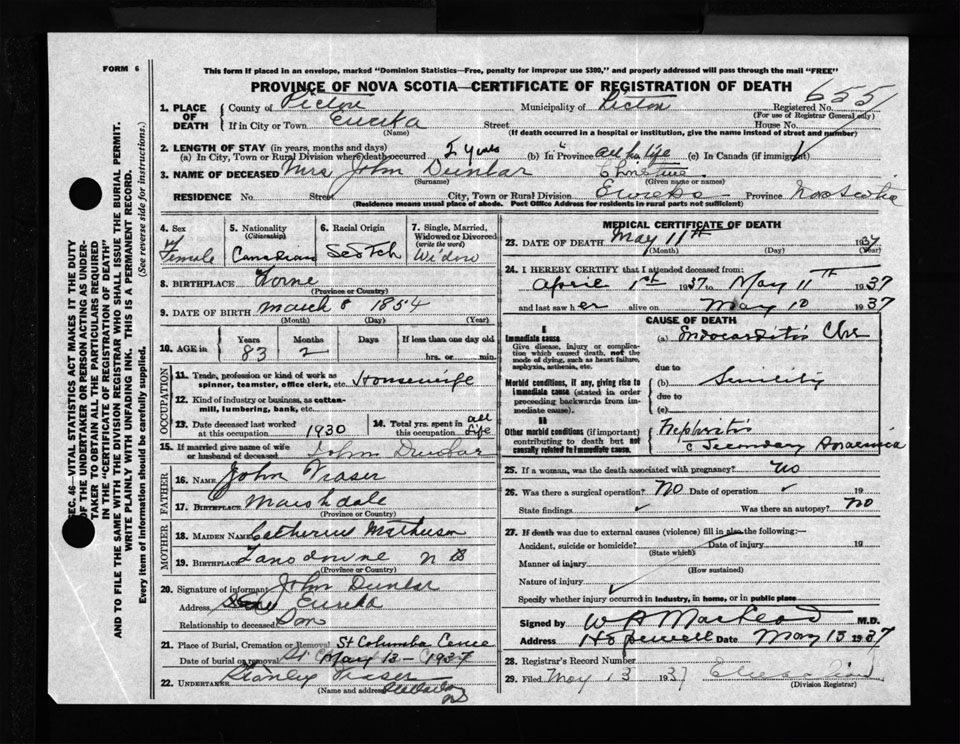 FORM 6
This form if placed in an envelope, marked "Dominion Statistics—Free, penalty for improper use $300," and properly addressed will pass through the mail "FREE"
PROVINCE OF NOVA SCOTIA—CERTIFICATE OF REGISTRATION OF DEATH
655
1. PLACE OF DEATH County of Pictou Municipality of Pictou Registered No.
(For use of Registrar General only)
If in City or Town Eureka Street House No.
(Name) (If death occurred in a hospital or institution, give the name instead of street and number)
2. LENGTH OF STAY (in years, months and days)
(a) In City, Town or Rural Division where death occurred years (b) In Province all her life (c) In Canada (if immigrant)
3. NAME OF DECEASED Mrs John Dunbar Christine
(Surname) (Given name or names)
RESIDENCE No. Street City, Town or Rural Division Eureka Province Nova Scotia
(Residence means usual place of abode. Post Office Address for residents in rural parts not sufficient)
4. Sex Female
5. Nationality (Citizenship) Canadian
6. Racial Origin Scotch
7. Single, Married, Widowed or Divorced (write the word) Widow
8. BIRTHPLACE
(Province or Country)
9. DATE OF BIRTH March 8 1854
(Month) (Day) (Year)
10. AGE in Years Months Days If less than one day
83 2 hrs. or min.
OCCUPATION
11. Trade, profession or kind of work as spinner, teamster, office clerk, etc. Housewife
12. Kind of industry or business, as cotton-mill, lumbering, bank, etc.
13. Date deceased last worked at this occupation 1930
14. Total yrs. spent in this occupation all life
15. If married give name of wife or husband of deceased John Dunbar
FATHER
16. Name John Fraser
17. Birthplace Marshdale
(Province or Country)
MOTHER
18. Maiden Name Catherine Matheson
19. Birthplace Lansdowne N S
(Province or Country)
20. Signature of informant John Dunbar
Address Eureka
Relationship to deceased Son
21. Place of Burial, Cremation or Removal St Columba Ceme
Date of burial or removal May 13 - 1937
22. UNDERTAKER Stanley Fraser
(Name and address)
MEDICAL CERTIFICATE OF DEATH
23. DATE OF DEATH May 11th 1937
(Month) (Day) (Year)
24. I HEREBY CERTIFY that I attended deceased from:
April 1st 1937 to May 11th 1937
and last saw her alive on May 10 1937
CAUSE OF DEATH
I
Immediate cause
Give disease, injury or complication which caused death, not the mode of dying, such as heart failure, asphyxia, asthenia, etc.
(a) Endocarditis Chr
due to
Morbid conditions, if any, giving rise to immediate cause (stated in order proceeding backwards from immediate cause).
(b) Senility
due to
(c)
II
Other morbid conditions (if important) contributing to death but not causally related to immediate cause.
Nephritis
c Secondary Anaemia
25. If a woman, was the death associated with pregnancy? No
26. Was there a surgical operation? No Date of operation 19
State findings Was there an autopsy? No
27. If death was due to external causes (violence) fill in also the following:
Accident, suicide or homicide? Date of injury 19
(State which)
Manner of injury
(How sustained)
Nature of injury
Specify whether injury occurred in industry, in home, or in public place
Signed by W A MacLeod M.D.
Address Hopewell Date May 13 1937
28. Registrar's Record Number
29. Filed May 13 1937
(Division Registrar)
SEC. 46—VITAL STATISTICS ACT MAKES IT THE DUTY
OF THE UNDERTAKER OR PERSON ACTING AS UNDER-
TAKER TO OBTAIN ALL THE PARTICULARS REQUIRED
IN THE "CERTIFICATE OF REGISTRATION OF DEATH"
AND TO FILE THE SAME WITH THE DIVISION REGISTRAR WHO SHALL ISSUE THE BURIAL PERMIT.
WRITE PLAINLY WITH UNFADING INK. THIS IS A PERMANENT RECORD.
Every item of information should be carefully supplied. (See reverse side for instructions.)